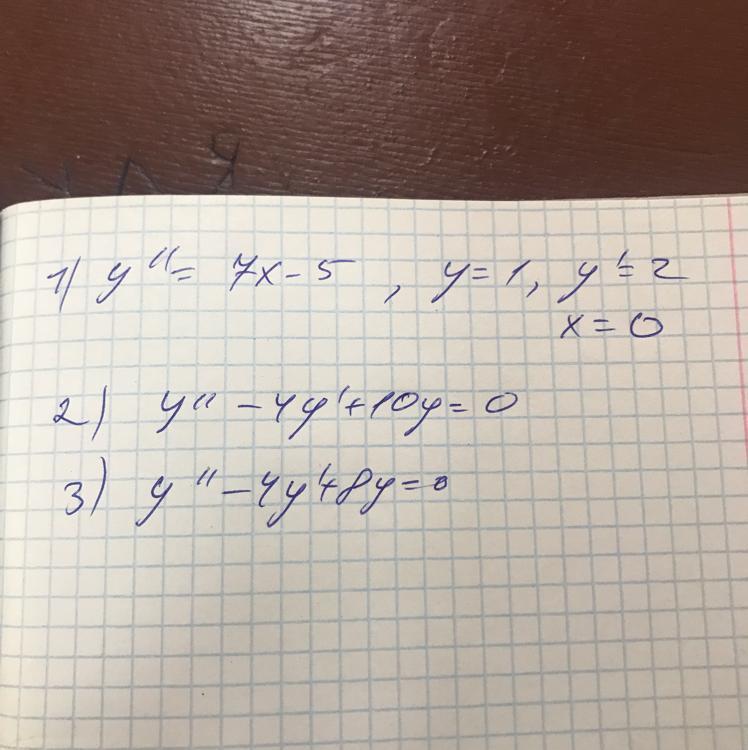 1) y'' = 7x - 5 , y = 1, y' = 2
x = 0
2) y'' - 4y' + 10y = 0
3) y'' - 4y' + 8y = 0